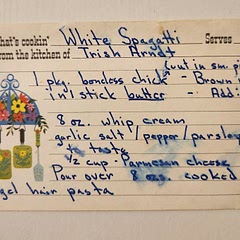 hat's cookin' White Spagetti Serves
rom the kitchen of Trish Arndt
(cut in sm. pi
1 pkg. boneless chick - Brown
in 1 stick butter - Add:
8 oz. whip cream
garlic salt / pepper / parsley
to taste
1/2 cup - Parmesan cheese
Pour over 8 ozs. cooked
gel hair pasta